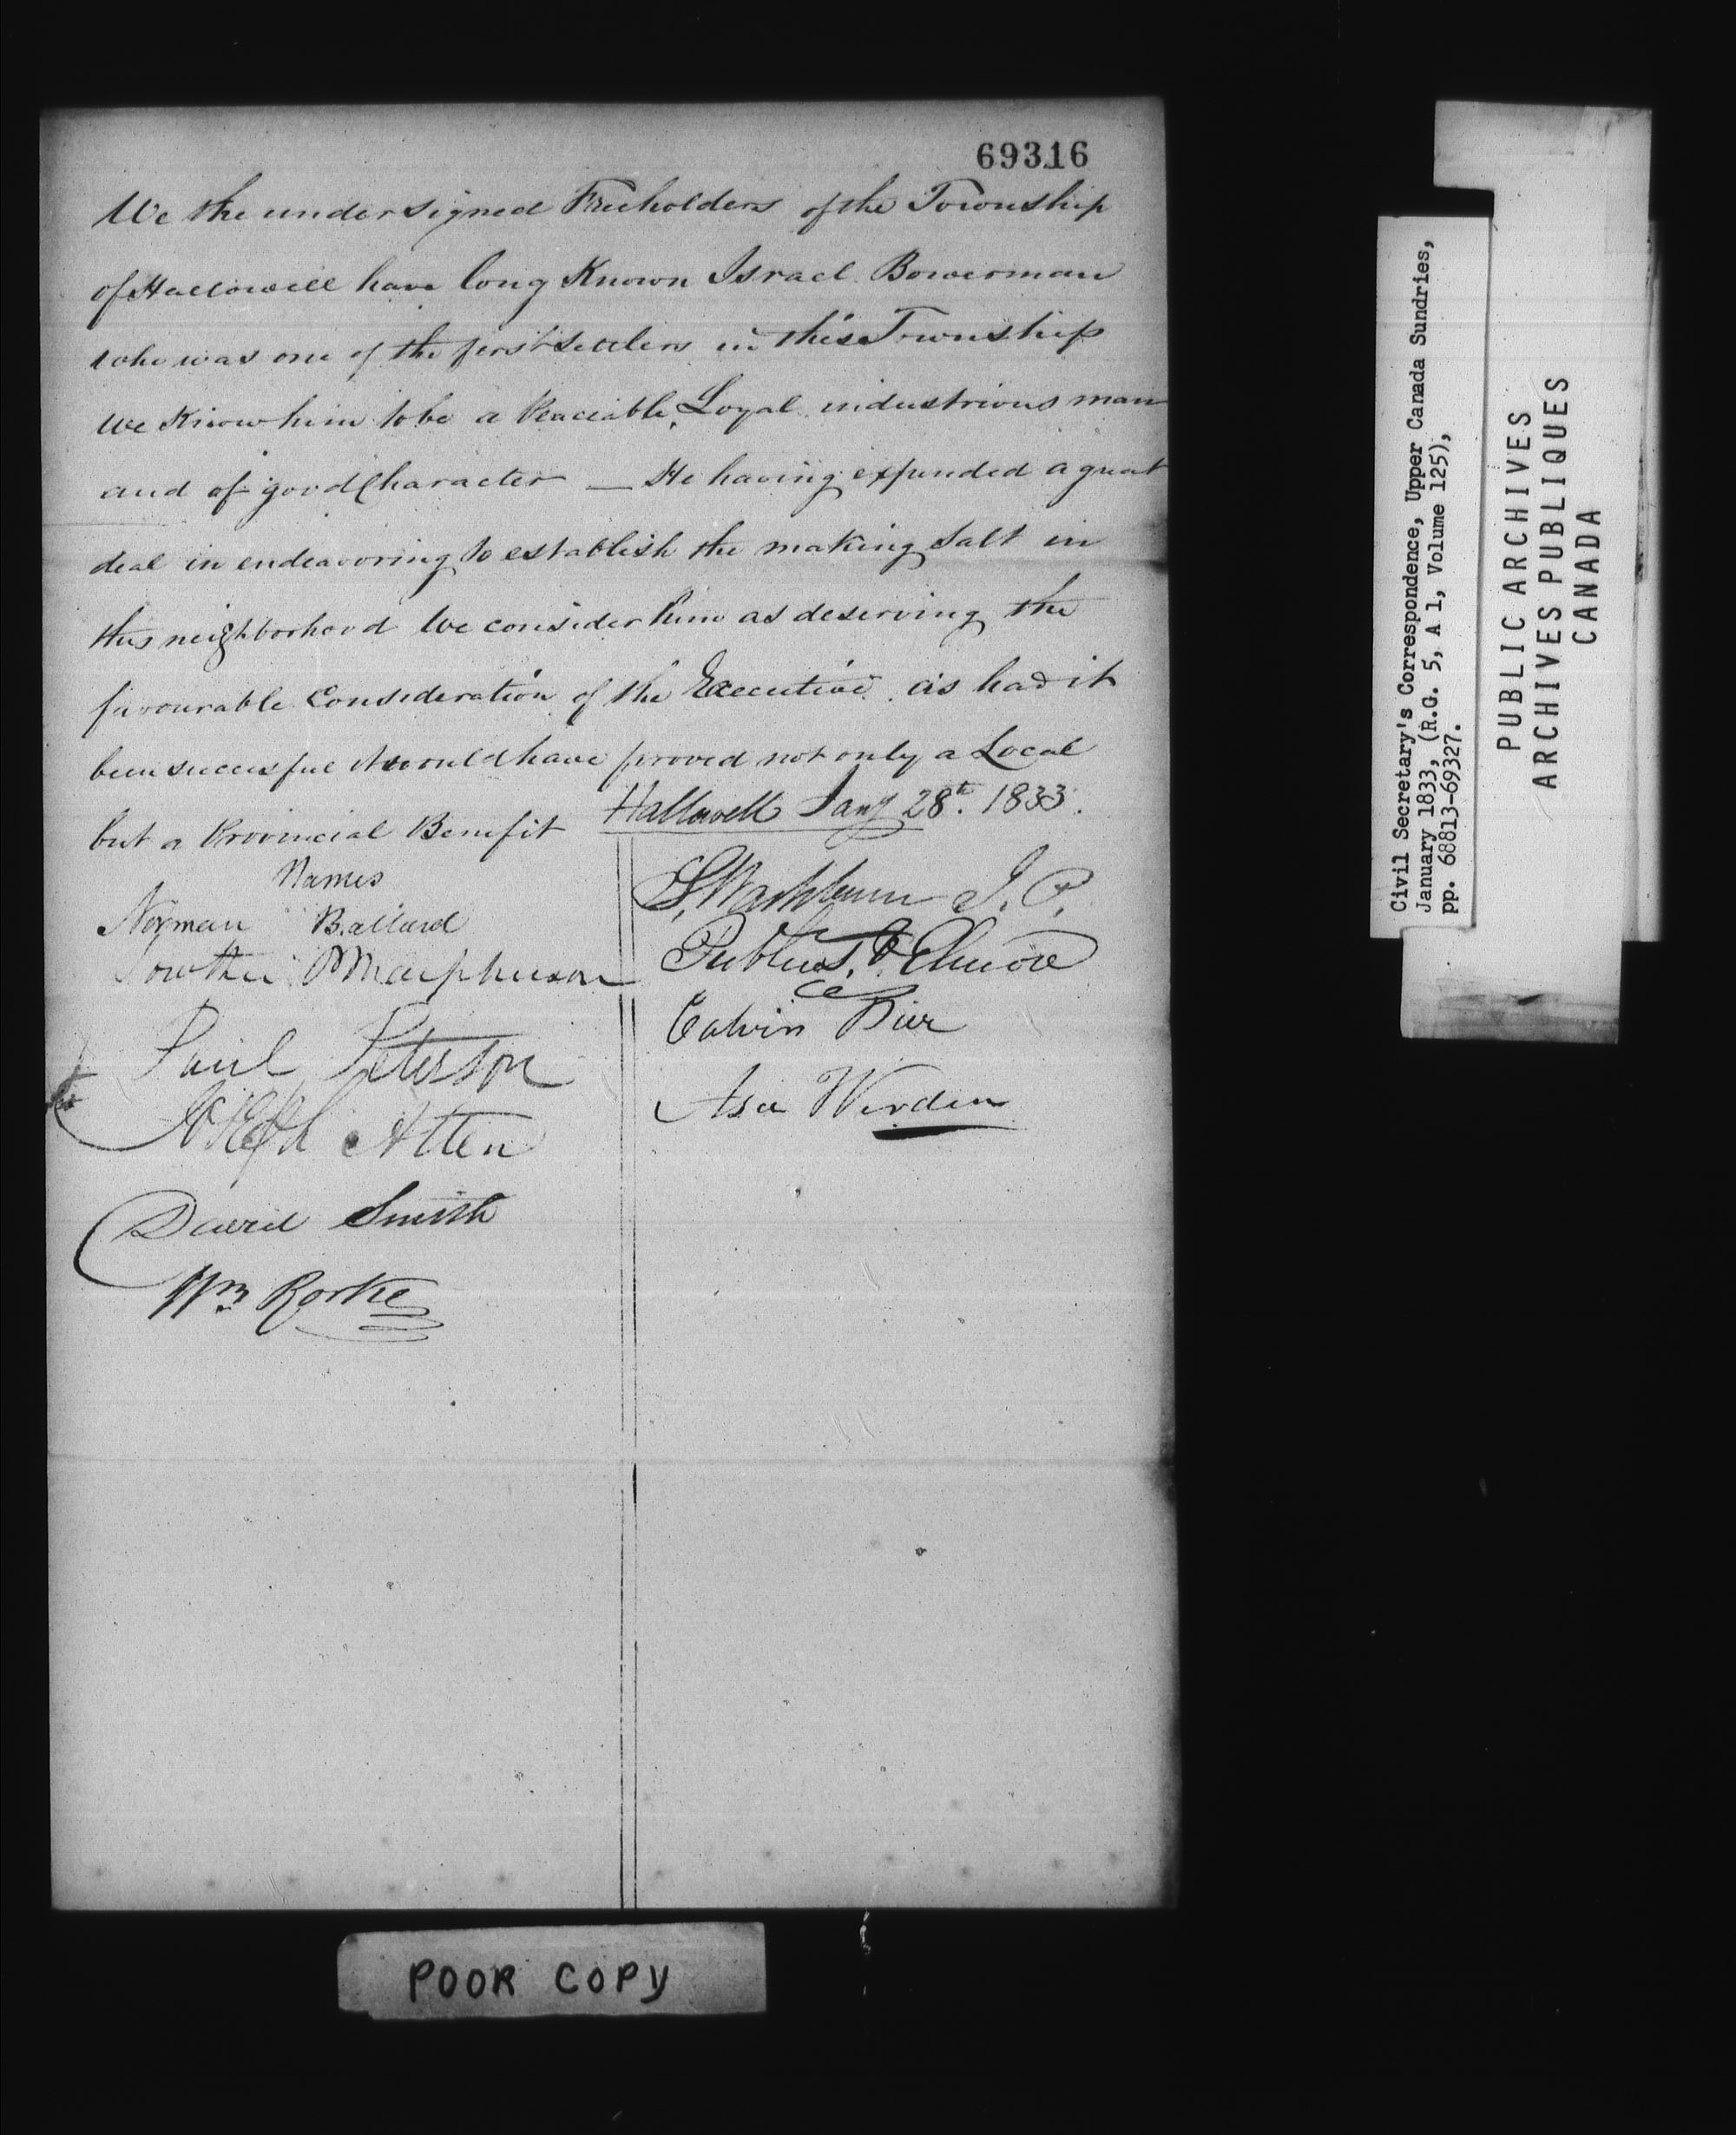 69316
We the undersigned Freeholders of the Township
of Hallowell have long Known Israel Bowerman
who was one of the first Settlers in this Township
we Know him to be a Peaciable, Loyal industrious man
and of good Character — He having expended a great
deal in endeavoring to establish the making Salt in
this neighborhood We consider him as deserving the
favourable Consideration of the Executive as had it
been successful it would have proved not only a Local
but a Provincial Benefit
Hallowell Jany 28th. 1833.
Names
Norman Ballard
Lowther Macpherson
Paul Peterson
Joseph Allen
David Smith
Wm Rorke
S. Washburn J. P.
Publius V. Elmore
Calvin Pier
Asa Werden
POOR COPY
Civil Secretary's Correspondence, Upper Canada Sundries,
January 1833, (R.G. 5, A 1, Volume 125),
pp. 68813-69327.
PUBLIC ARCHIVES
ARCHIVES PUBLIQUES
CANADA